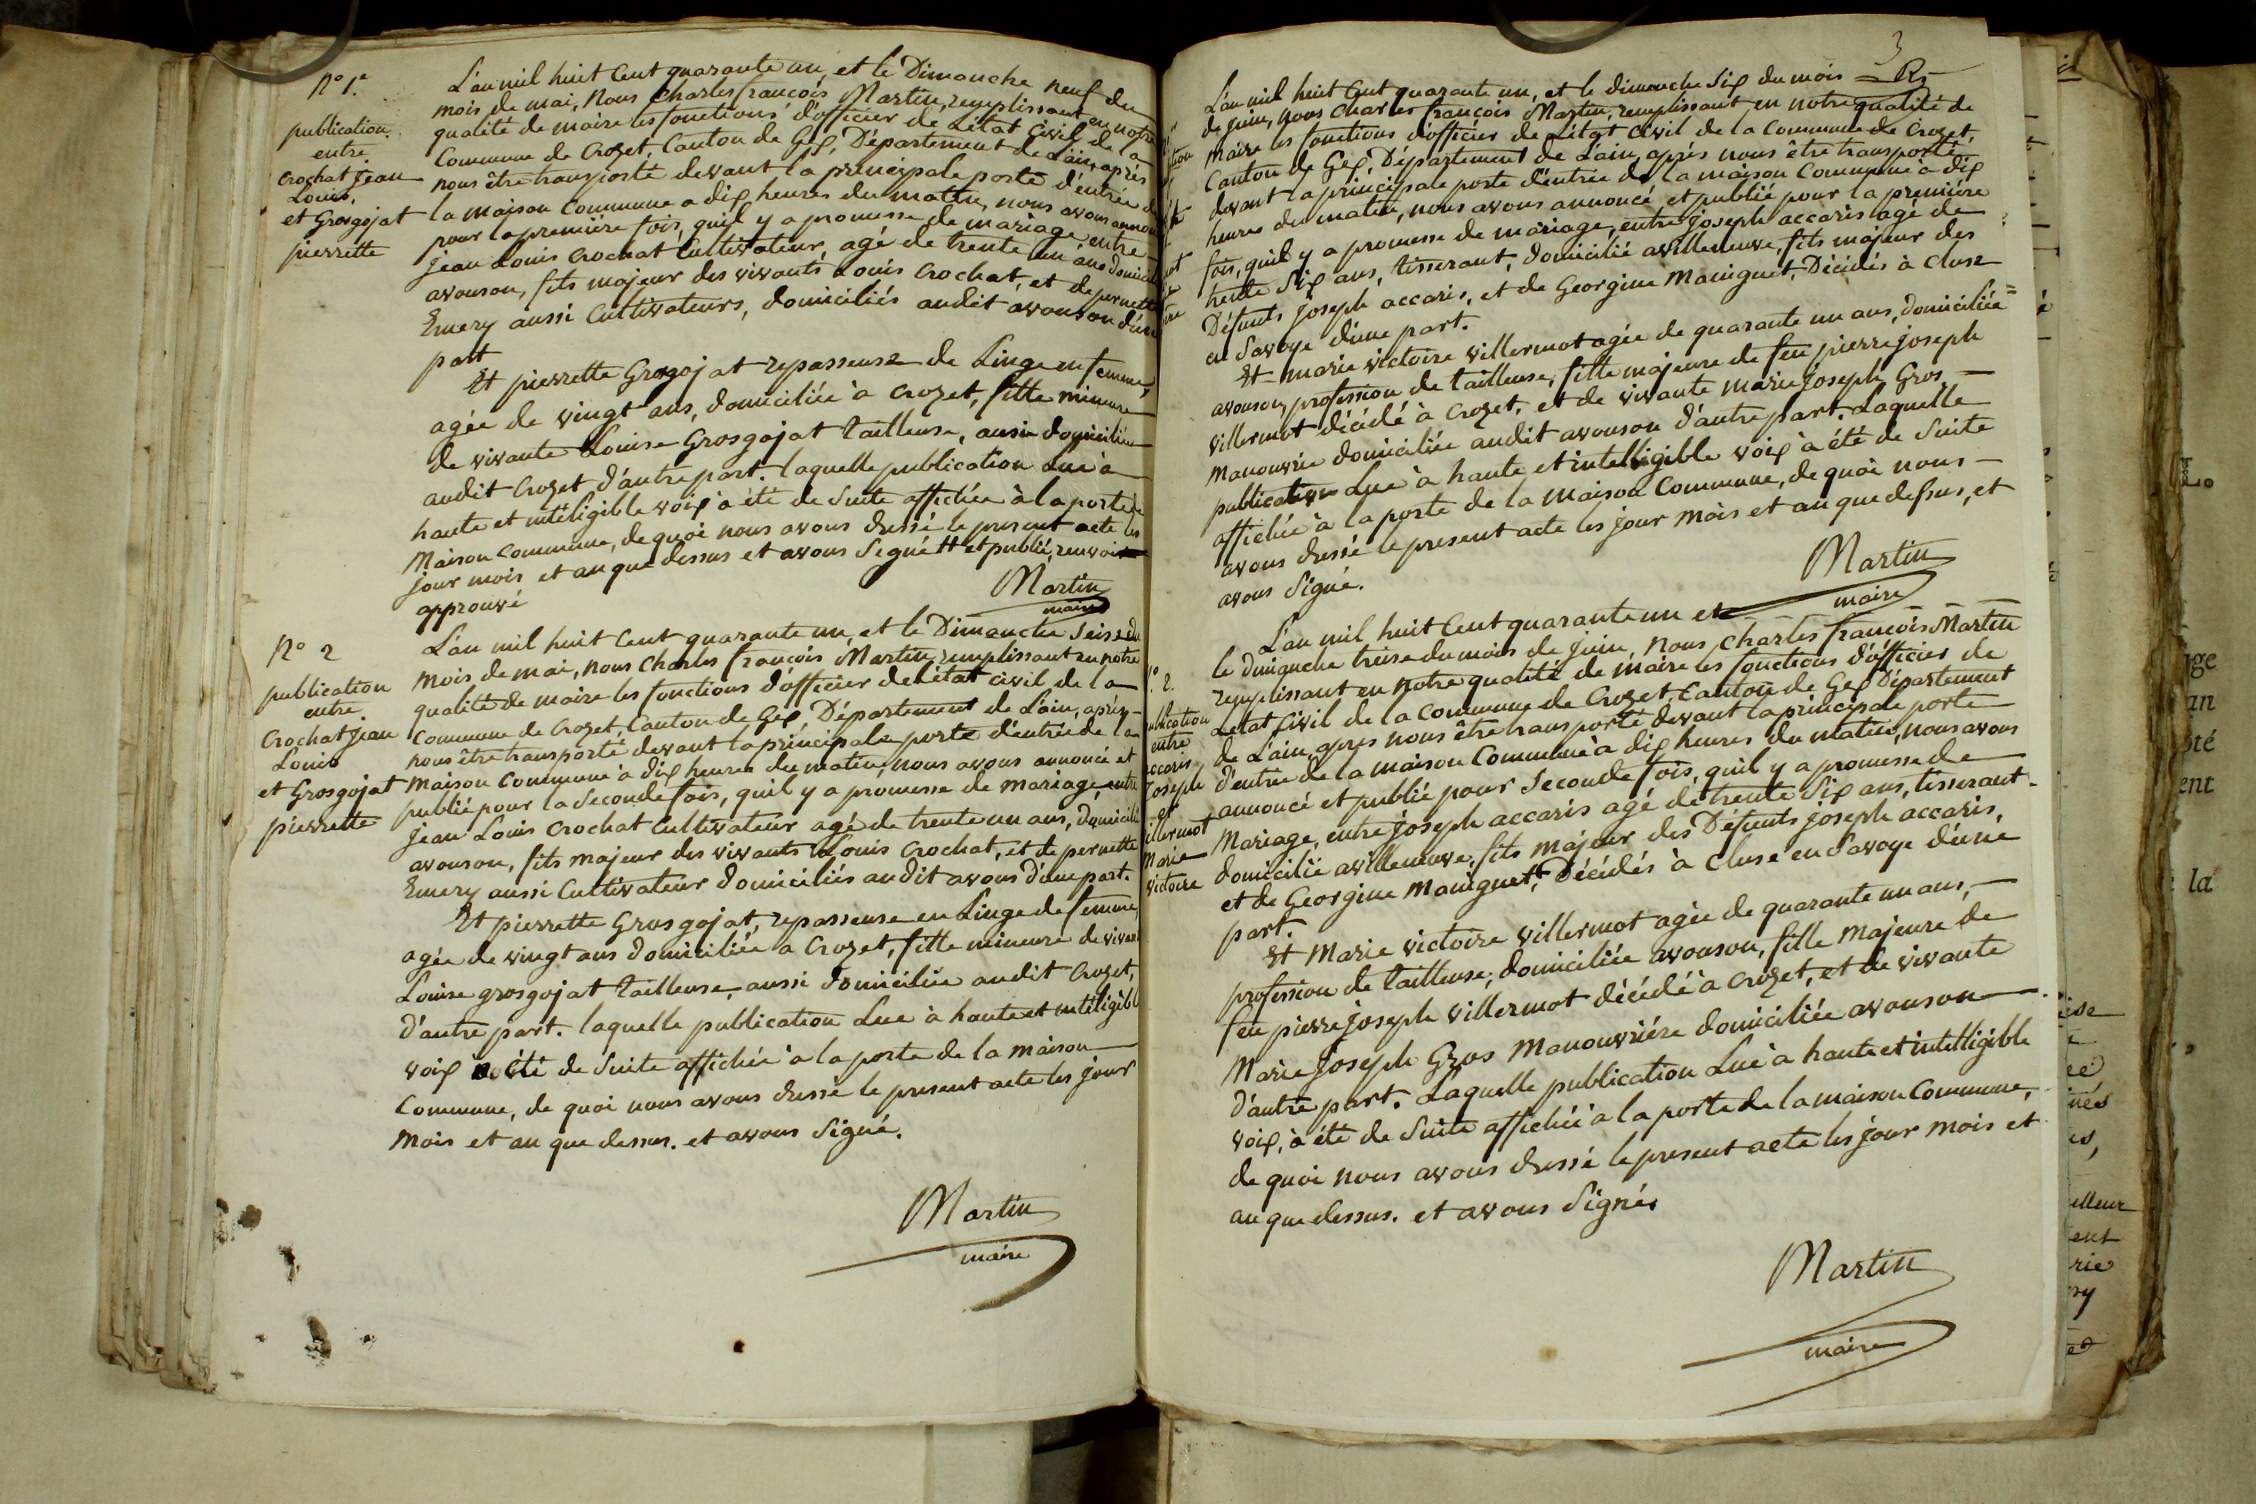 N° 1er
publication
entre
Crochat Jean
Louis,
et Grosgojat
pierrette
L'an mil huit Cent quarante un, et le Dimanche neuf du
mois de mai, Nous Charles françois Martin, remplissant en notre
qualité de maire les fonctions d'officier de L'état Civil de la
Commune de Crozet, Canton de Gex, Département de L'ain, après
nous être transporté devant la principale porte d'entrée de
la maison Commune a dix heures du matin, nous avons annoncé
pour la première fois, qu'il y a promesse de mariage entre
jean Louis Crochat Cultivateur, agé de trente un ans domicilié
avouson, fils majeur des vivants Louis Crochat, et de pernette
Emery aussi Cultivateurs, domiciliés audit avouson d'une
part
Et pierrette Grosgojat repasseuse de Linge en femme,
agée de vingt ans, domiciliée à Crozet, fille mineure
de vivante Louise Grosgojat tailleuse, aussi domiciliée
audit Crozet d'autre part. laquelle publication Lue à
haute et intéligible voix à été de Suite affichée à la porte de
Maison Commune, de quoi nous avons dressé le present acte les
jour mois et an que dessus et avons Signé # et publié, renvoi
approuvé
Martin
maire
N° 2
publication
entre
Crochat jean
Louis
et Grosgojat
pierrette
L'an mil huit Cent quarante un, et le Dimanche Seise du
mois de mai, nous Charles françois Martin, remplissant en notre
qualité de maire les fonctions d'officier de L'état civil de la
Commune de Crozet, Canton de Gex, Département de L'ain, après
nous être transporté devant la principale porte d'entrée de la
Maison Commune à dix heures du matin, nous avons annoncé et
publié pour la Seconde fois, qu'il y a promesse de mariage, entre
jean Louis Crochat Cultivateur agé de trente un ans, domicilié
avouson, fils majeur des vivants Louis Crochat, et de pernette
Emery aussi Cultivateur domiciliés audit avous d'une part.
Et pierrette Grosgojat, repasseuse en Linge de femme,
agée de vingt ans domiciliée a Crozet, fille mineure de vivant
Louise grosgojat tailleuse, aussi domiciliée audit Crozet,
d'autre part. laquelle publication Lue à haute et intéligible
voix a été de Suite affichée à la porte de la maison
Commune, de quoi nous avons dressé le present acte les jour
mois et an que dessus. et avons Signé.
Martin
maire
3
L'an mil huit Cent quarante un, et le dimanche Six du mois
de juin, nous Charles françois Martin, remplissant en notre qualité de
maire les fonctions d'officier de L'état Civil de la Commune de Crozet,
Canton de Gex, Département de L'ain, après nous être transporté
devant la principale porte d'entrée de la maison Commune à dix
heures du matin, nous avons annoncé et publié pour la première
fois, qu'il y a promesse de mariage, entre joseph accaris agé de
trente Six ans, tisserant, domicilié avilleneuve, fils majeur des
Défunts joseph accaris, et de Georgine Mauignet, Décidés à Cluse
en Savoye d'une part.
Et marie victoire villermot agée de quarante un ans, domiciliée=
avouson, profession de tailleuse, fille majeure de feu pierre joseph
villermot décidé à Crozet, et de vivante marie joseph Gros
manouvrie domiciliée audit avouson d'autre part. Laquelle
publication Lue à haute et intelligible voix à été de Suite
affichée à la porte de la Maison Commune, de quoi nous
avons dressé le present acte les jour mois et an que dessus, et
avons Signé.
Martin
maire
° 2.
ublication
entre
accaris
joseph
et
villermot
Marie
victoire
L'an mil huit Cent quarante un et
le dimanche treise du mois de juin, Nous Charles françois Martin
remplissant en notre qualité de maire les fonctions d'officier de
L'état civil de la Commune de Crozet, Canton de Gex Département
de L'ain, après nous être transporté devant la principale porte
d'entrée de la maison Commune à dix heures du matin, nous avons
annoncé et publié pour Seconde fois, qu'il y a promesse de
Mariage, entre joseph accaris agé de trente Six ans, tisserant
domicilié avilleneuve, fils majeur des Défunts joseph accaris,
et de Georgine Mauignet, Décidés à Cluse en Savoye d'une
part.
Et Marie victoire villermot agée de quarante un ans,
profession de tailleuse, domiciliée avouson, fille majeure de
feu pierre joseph villermot décédé à Crozet, et de vivante
Marie joseph Gros Manouvrière domiciliée avouson
d'autre part. Laquelle publication Lue à haute et intelligible
voix, à été de Suite affichée a la porte de la maison Commune,
de quoi nous avons dressé le present acte les jour mois et
an que dessus. et avons Signé.
Martin
maire